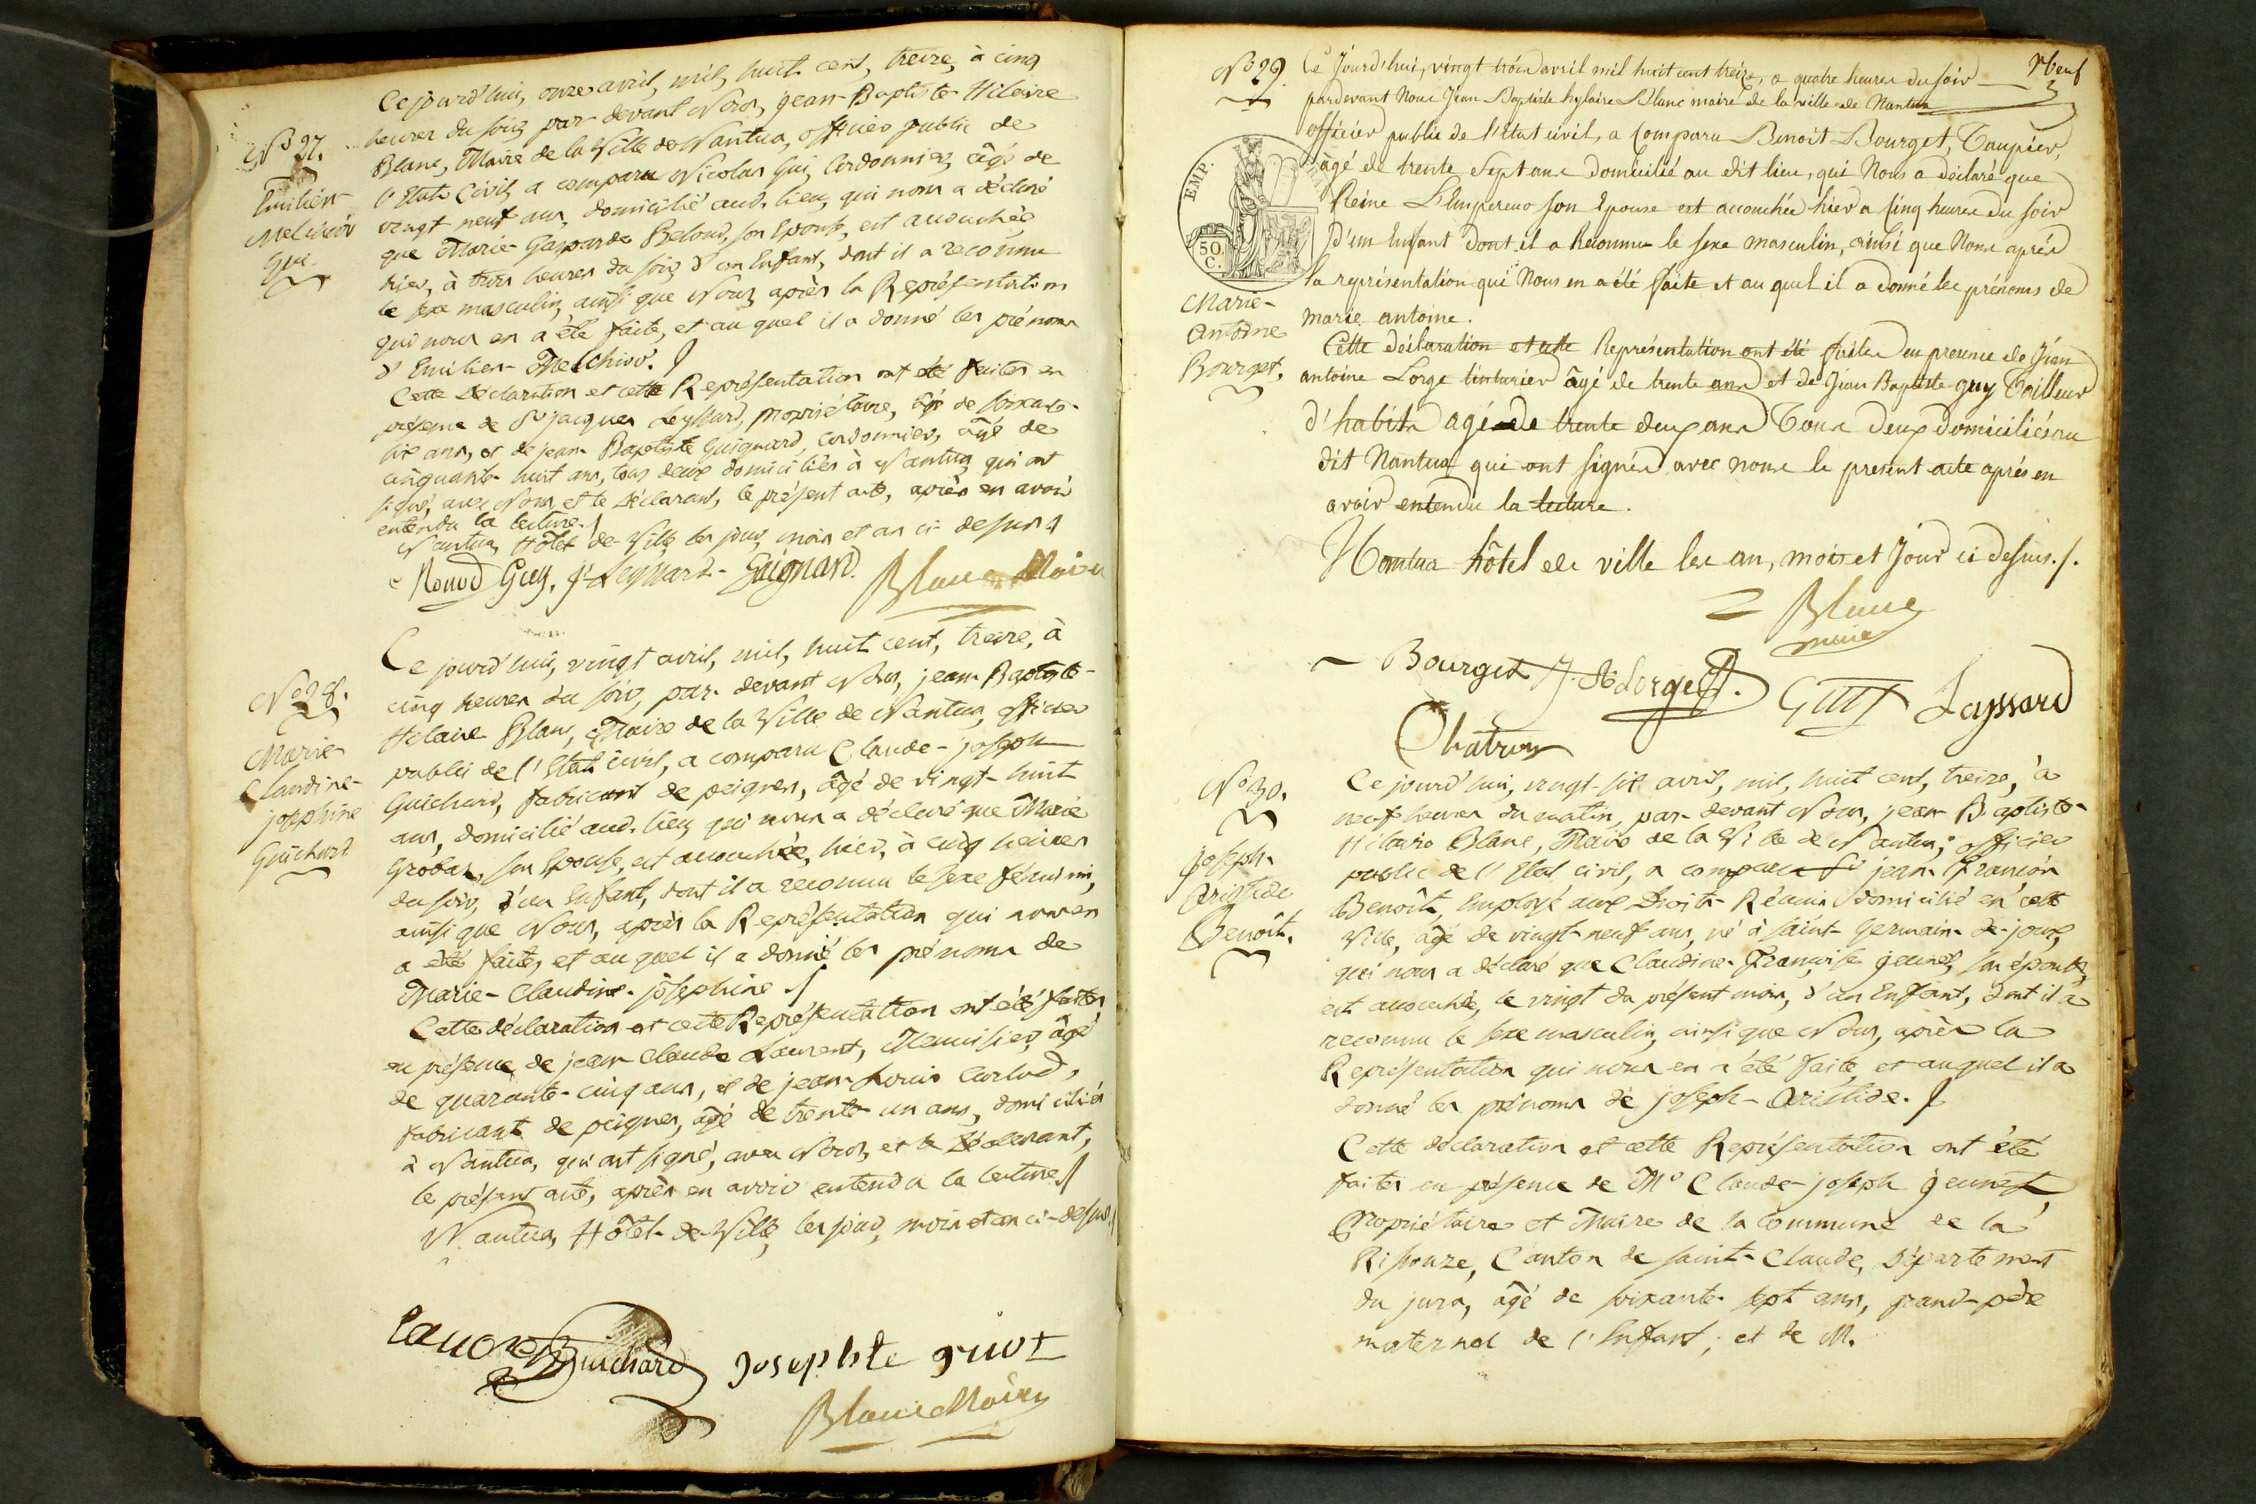 N.° 27.
Emilien
Melchior
Guy.
Ce jourd'hui, onze avril, mil, huit cent, treize, à cinq
heures du soir, par-devant Nous, jean-Baptiste-Hilaire
Blanc, Maire de la Ville de Nantua, officier public de
l'Etat Civil, a comparu Nicolas Gui, Cordonnier, âgé de
vingt-neuf ans, domicilié aud. lieu, qui nous a déclaré
que Marie-Gasparde Beloud, son Epouse, est accouchée
hier, à trois heures du soir, d'un Enfant, dont il a reconnu
le sexe masculin, ainsi que Nous, après la Représentation
qui nous en a été faite, et au quel il a donné les prénoms
d'Emilien-Melchior. /
Cette Déclaration et cette Représentation ont été faites en
présence de Sr jacques Leyssard, propriétaire, âgé de soixante-
six ans, et de jean-Baptiste Guignard, cordonnier, âgé de
cinquante-huit ans, tous deux domiciliés à Nantua, qui ont
signé, avec Nous, et le Déclarant, le présent acte, après en avoir
entendu la lecture. /
Nantua, Hôtel-de-Ville, les jour, mois et an ci-dessus /
Guy. Jq Leyssard Guignard. Blanc Maire
N.° 28.
Marie-
Claudine-
josephine
Guichard
Ce jourd'hui, vingt avril, mil, huit cent, treize, à
cinq heures du soir, par-devant Nous, jean-Baptiste-
Hilaire Blanc, Maire de la Ville de Nantua, officier
public de l'Etat civil, a comparu Claude-joseph
Guichard, fabricant de peignes, âgé de vingt-huit
ans, domicilié aud. lieu, qui nous a déclaré que Marie
Grobas, son Epouse, est accouchée, hier, à cinq heures
du soir, d'un Enfant, dont il a reconnu le sexe féminin,
ainsi que Nous, après la Représentation qui nous en
a été faite, et au quel il a donné les prénoms de
Marie-Claudine-josephine. /
Cette déclaration et cette Représentation ont été faites
en présence de jean-Claude Laurent, Menuisier, âgé
de quarante-cinq ans, et de jean-Louis Carlod,
fabricant de peignes, âgé de trente-un ans, domiciliés
à Nantua, qui ont signé, avec Nous, et le Déclarant,
le présent acte, après en avoir entendu la lecture /
Nantua, Hôtel-de-Ville, les jour, mois et an ci-dessus /
Guichard Blanc Maire
N° 29.
EMP.
50
C.
Marie-
Antoine
Bourget.
Ce Jourd'hui, vingt trois avril mil huit cent treize, a quatre heures du soir
pardevant Nous Jean Baptiste hylaire Blanc maire de la ville de Nantua
officier public de l'état civil, a Comparu Benoit Bourget, Taupier,
âgé de trente Sept ans Domicilié au dit lieu, qui Nous a déclaré que
Reine L'Empereur Son Epouse est accouchée hier a Cinq heures du Soir
D'un Enfant dont il a Reconnu le Sexe masculin, ainsi que Nous après
la représentation qui Nous en a été faite et au quel il a donné les prénoms de
marie antoine.
Cette déclaration et cette Représentation ont été faites en presence de Jean
antoine Lorge tinturier âgé de trente ans et de Jean Baptiste guy Tailleur
d'habits agé de trente deux ans Tous deux Domiciliés au
dit Nantua qui ont signés avec nous le present acte après en
avoir entendu la lecture.
Nantua hôtel de ville les an, mois et Jour ci dessus./.
Blanc
maire
Bourget Guy Leyssard
N.° 30.
joseph-
Aristide
Benoît.
Ce jourd'hui, vingt-six avril, mil, huit cent, treize, à
neuf heures du matin, par-devant Nous, jean-Baptiste-
Hilaire Blanc, Maire de la Ville de Nantua, officier
public de l'Etat civil, a comparu Sr jean-François
Benoît, Employé aux Droits-Réunis, domicilié en cette
Ville, âgé de vingt-neuf ans, né à Saint-Germain-de-joux,
qui nous a déclaré que Claudine-Françoise jeunet, son épouse,
est accouchée, le vingt du présent mois, d'un Enfant, dont il a
reconnu le sexe masculin, ainsi que Nous, après la
Représentation qui nous en a été faite, et auquel il a
donné les prénoms de joseph-Aristide. /
Cette déclaration et cette Représentation ont été
faites en présence de Mr Claude-joseph jeunet,
Propriétaire et Maire de la Commune de la
Rixouze, Canton de Saint-Claude, Département
du jura, âgé de soixante-sept ans, grand-père
maternel de l'Enfant; et de M.